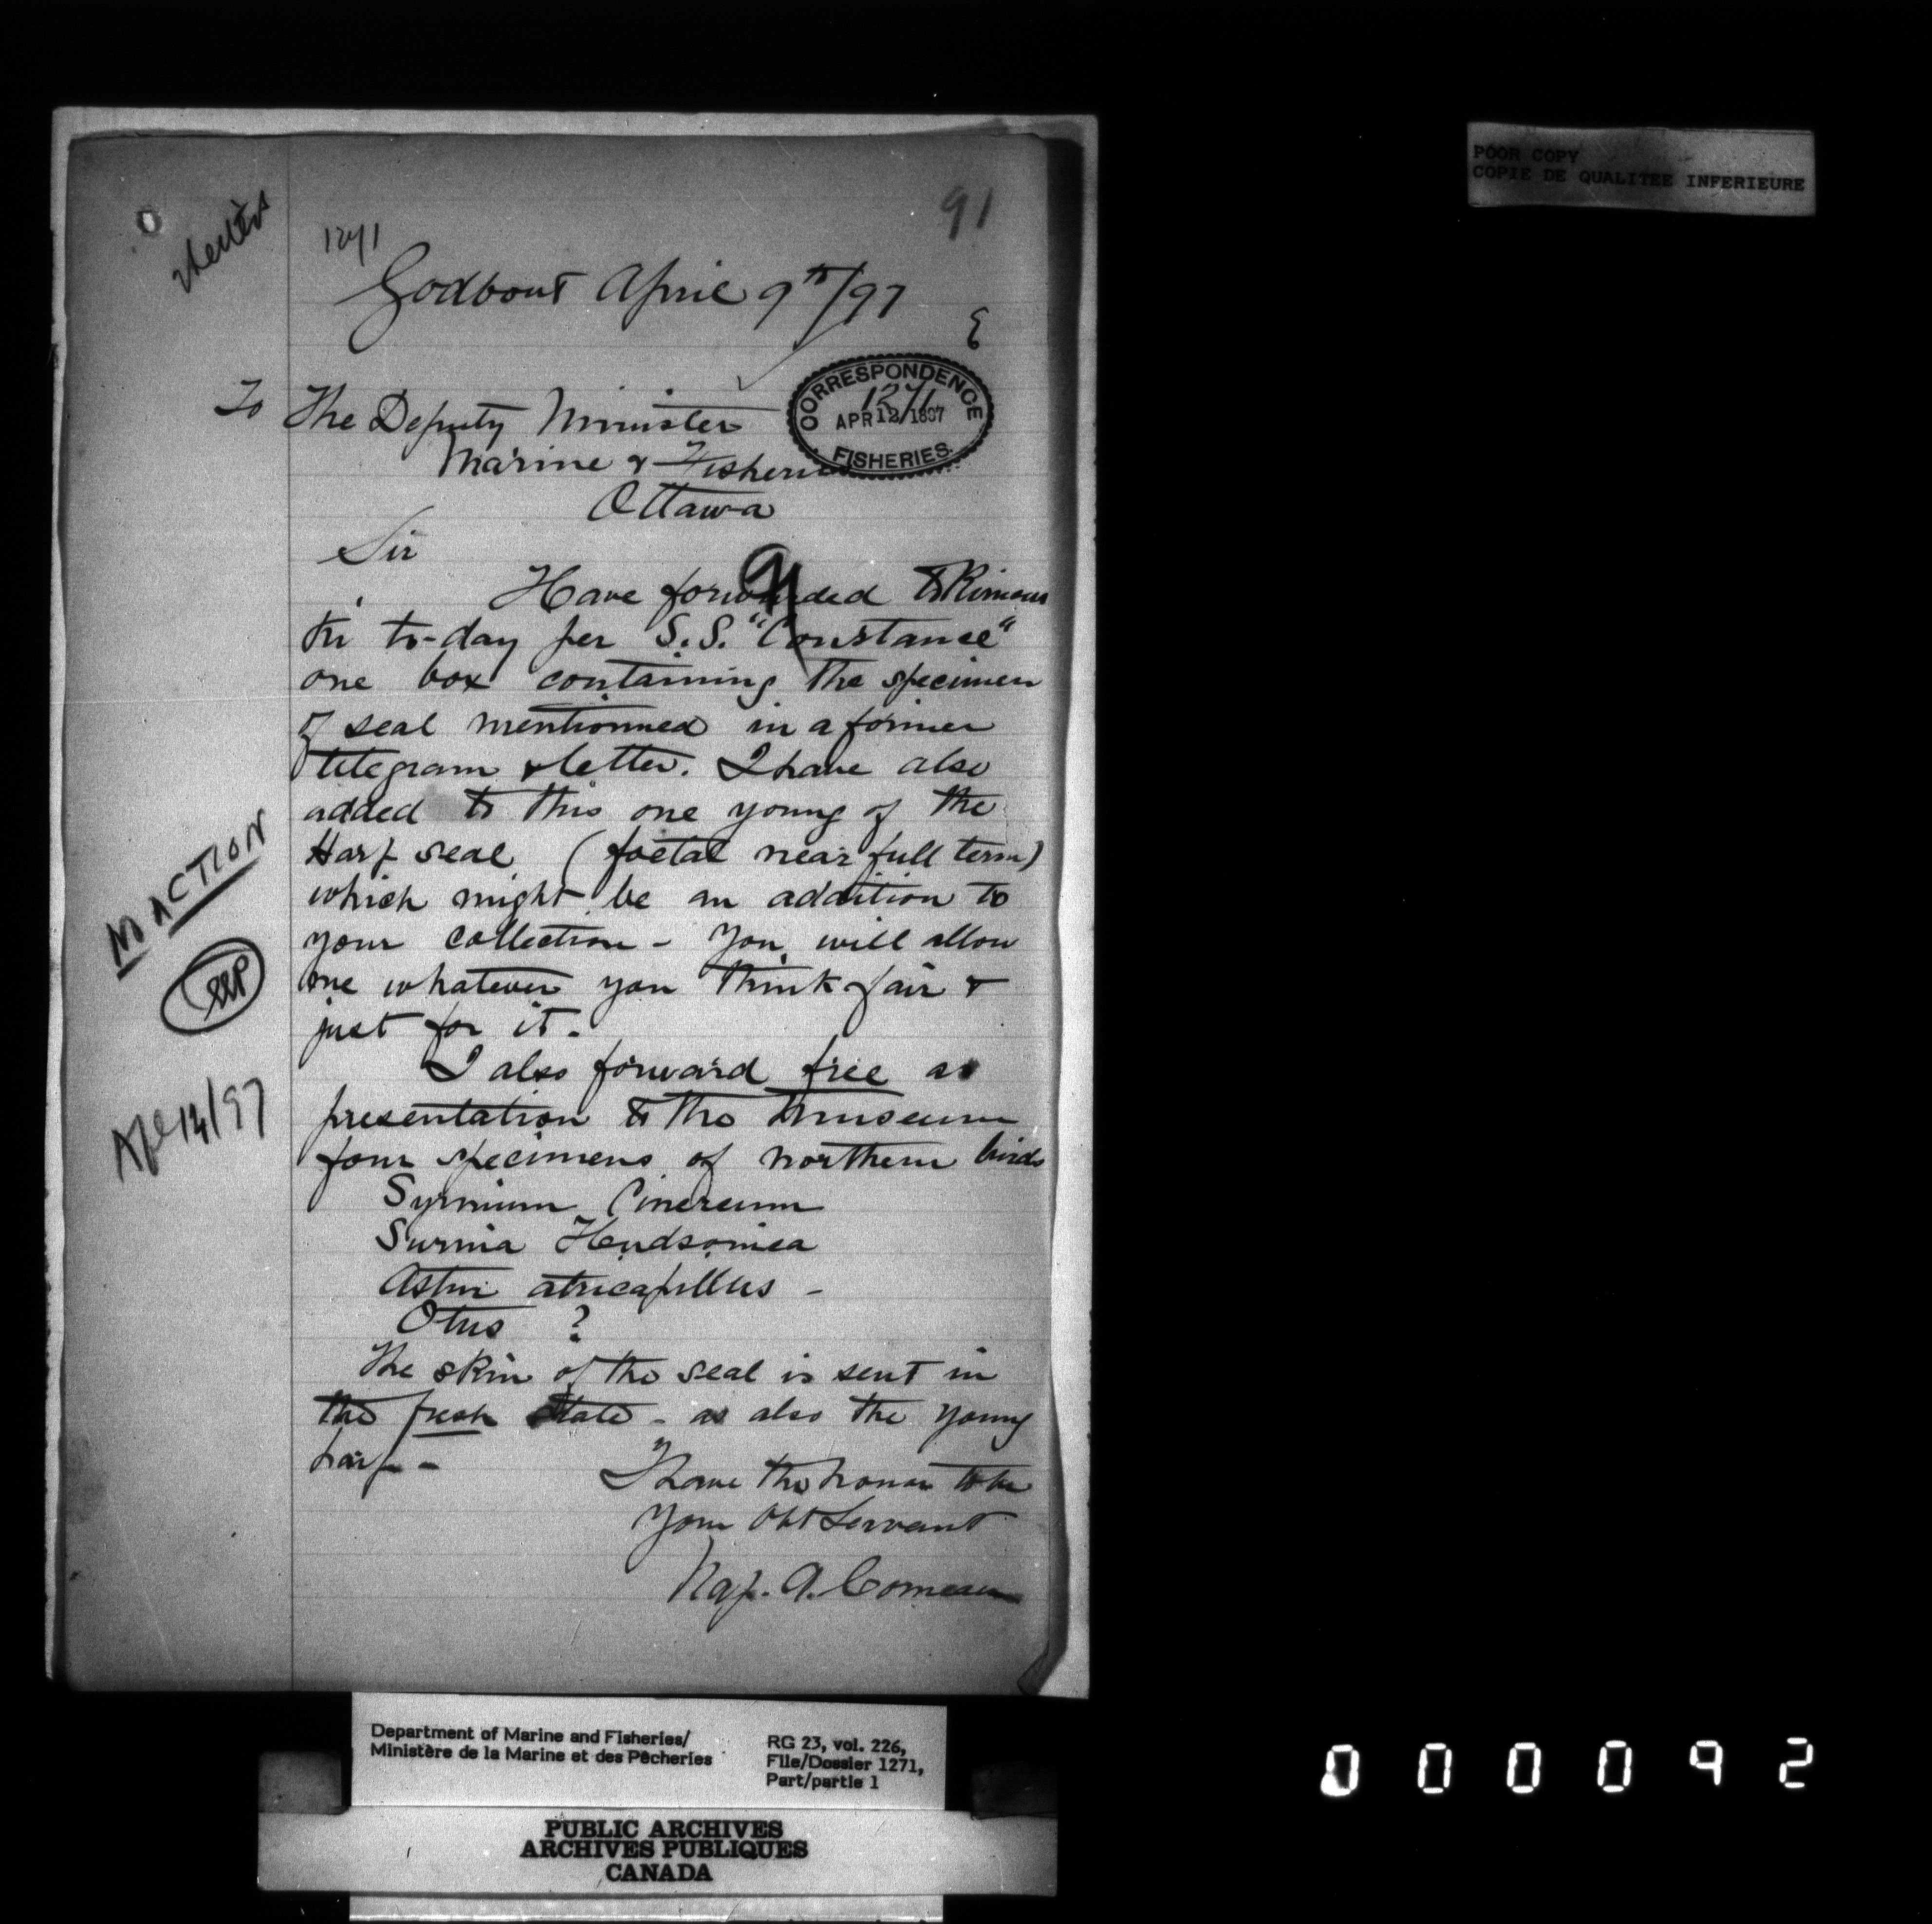 POOR COPY
COPIE DE QUALITEE INFERIEURE
91
1271
Godbout April 9th/97
To The Deputy Minister
Marine & Fisheries
Ottawa
CORRESPONDENCE
1271
APR 12 1897
FISHERIES
Sir
Have forwarded to Rimous
ki to-day per S.S. "Constance"
one box containing the specimen
of seal mentionned in a former
telegram & letter. I have also
added to this one young of the
Harp seal (foetal near full term)
which might be an addition to
your collection - You will allow
me whatever you think fair &
just for it.
I also forward free as
presentation to the Museum
four specimens of northern birds
Syrnium Cinereum
Surnia Hudsonica
Astur atricapillus -
Otus ?
The skin of the seal is sent in
the fresh state - as also the young
harp -
I have the honor to be
Your Obt Servant
Nap. A. Comeau
NO ACTION
Apl 14/97
Department of Marine and Fisheries/
Ministère de la Marine et des Pêcheries
RG 23, vol. 226,
File/Dossier 1271,
Part/partie 1
PUBLIC ARCHIVES
ARCHIVES PUBLIQUES
CANADA
000092